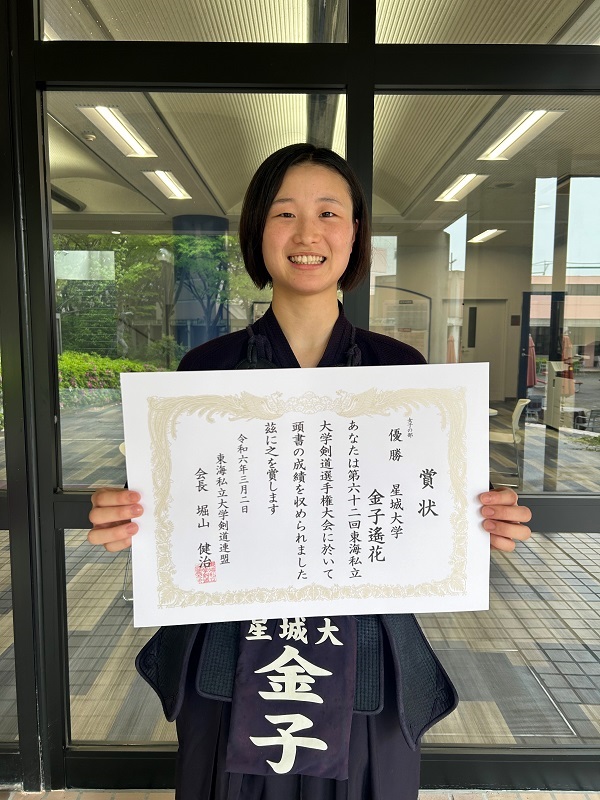 賞状
女子の部
優勝 星城大学
金子遙花
あなたは第六十二回東海私立
大学剣道選手権大会に於いて
頭書の成績を収められました
茲に之を賞します
令和六年三月二日
東海私立大学剣道連盟
会長 堀山 健治
星城大
金子